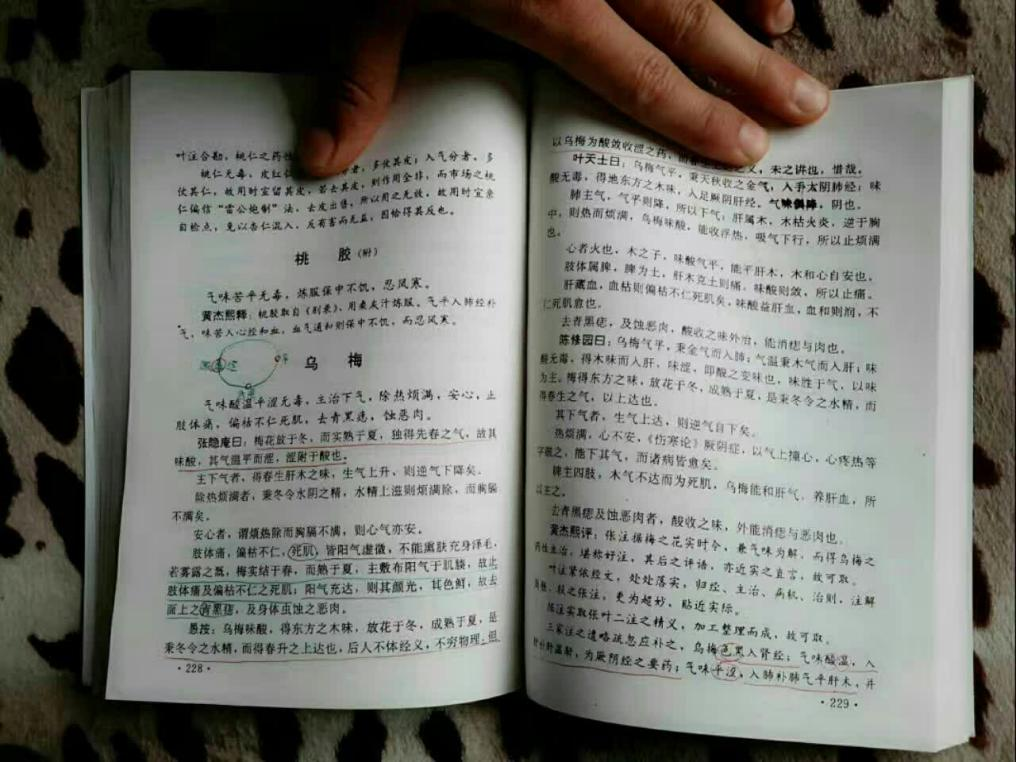 叶注合勘，桃仁之药性
桃仁无毒，皮红仁 者，多伏其皮；入气分者，多
伏其仁，故用时宜留其皮，若去其皮，则作用全非，而市场之桃
仁偏信“雷公炮制”法，去皮出售，所以用之无效，故用时宜亲
自检点，免以杏仁混入，反有害而无益，因恰得其反也。
桃 胶（附）
气味苦平无毒，炼服保中不饥，忍风寒。
黄杰熙释：桃胶取自《别录》，用桑灰汁炼服，气平入肺经补
气，味苦入心经和血，血气通和则保中不饥，而忍风寒。
乌 梅
气味酸温平涩无毒，主治下气，除热烦满，安心，止
肢体痛，偏枯不仁死肌，去青黑痣，蚀恶肉。
张隐庵曰：梅花放于冬，而实熟于夏，独得先春之气，故其
味酸，其气温平而涩，涩附于酸也。
主下气者，得春生肝木之味，生气上升，则逆气下降矣。
除热烦满者，禀冬令水阴之精，水精上滋则烦满除，而胸膈
不满矣。
安心者，谓烦热除而胸膈不满，则心气亦安。
肢体痛，偏枯不仁，死肌，皆阳气虚微，不能熏肤充身泽毛，
若雾露之溉，梅实结于春，而熟于夏，主敷布阳气于肌腠，故止
肢体痛及偏枯不仁之死肌；阳气充达，则其颜光，其色鲜，故去
面上之青黑痣，及身体虫蚀之恶肉。
愚按：乌梅味酸，得东方之木味，放花于冬，成熟于夏，是
秉冬令之水精，而得春升之上达也，后人不体经义，不穷物理，但
·228·
以乌梅为酸敛收涩之药， 义，未之讲也，惜哉。
叶天士曰：乌梅气平，秉天秋收之金气，入手太阴肺经；味
酸无毒，得地东方之木味，入足厥阴肝经。气味俱降，阴也。
肺主气，气平则降，所以下气；肝属木，木枯火炎，逆于胸
中，则热而烦满，乌梅味酸，能收浮热，吸气下行，所以止烦满
也。
心者火也，木之子，味酸气平，能平肝木，木和心自安也。
肢体属脾，脾为土，肝木克土则痛，味酸则敛，所以止痛。
肝藏血，血枯则偏枯不仁死肌矣，味酸益肝血，血和则润，不
仁死肌愈也。
去青黑痣，及蚀恶肉，酸收之味外治，能消痣与肉也。
陈修园曰：乌梅气平，秉金气而入肺；气温秉木气而入肝；味
酸无毒，得木味而入肝，味涩，即酸之变味也，味胜于气，以味
为主。梅得东方之味，放花于冬，成熟于夏，是秉冬令之水精，而
得春生之气，以上达也。
其下气者，生气上达，则逆气自下矣。
热烦满，心不安，《伤寒论》厥阴症，以气上撞心，心疼热等
字概之，能下其气，而诸病皆愈矣。
脾主四肢，木气不达而为死肌，乌梅能和肝气，养肝血，所
以主之。
去青黑痣及蚀恶肉者，酸收之味，外能消痣与恶肉也。
黄杰熙评：张注据梅之花实时令，兼气味为解，而得乌梅之
药性主治，堪称好注，其后之评语，亦近实之直言，故可取。
叶注紧依经文，处处落实，归经、主治、病机、治则，注解
较之张注，更为超妙，贴近实际。
陈注实取张叶二注之精义，加工整理而成，故可取。
三家注之遗略疏忽应补之，乌梅色黑入肾经；气味酸温，入
肝 温肝，为厥阴经之要药；气味平涩，入肺补肺气平肝木，并
·229·